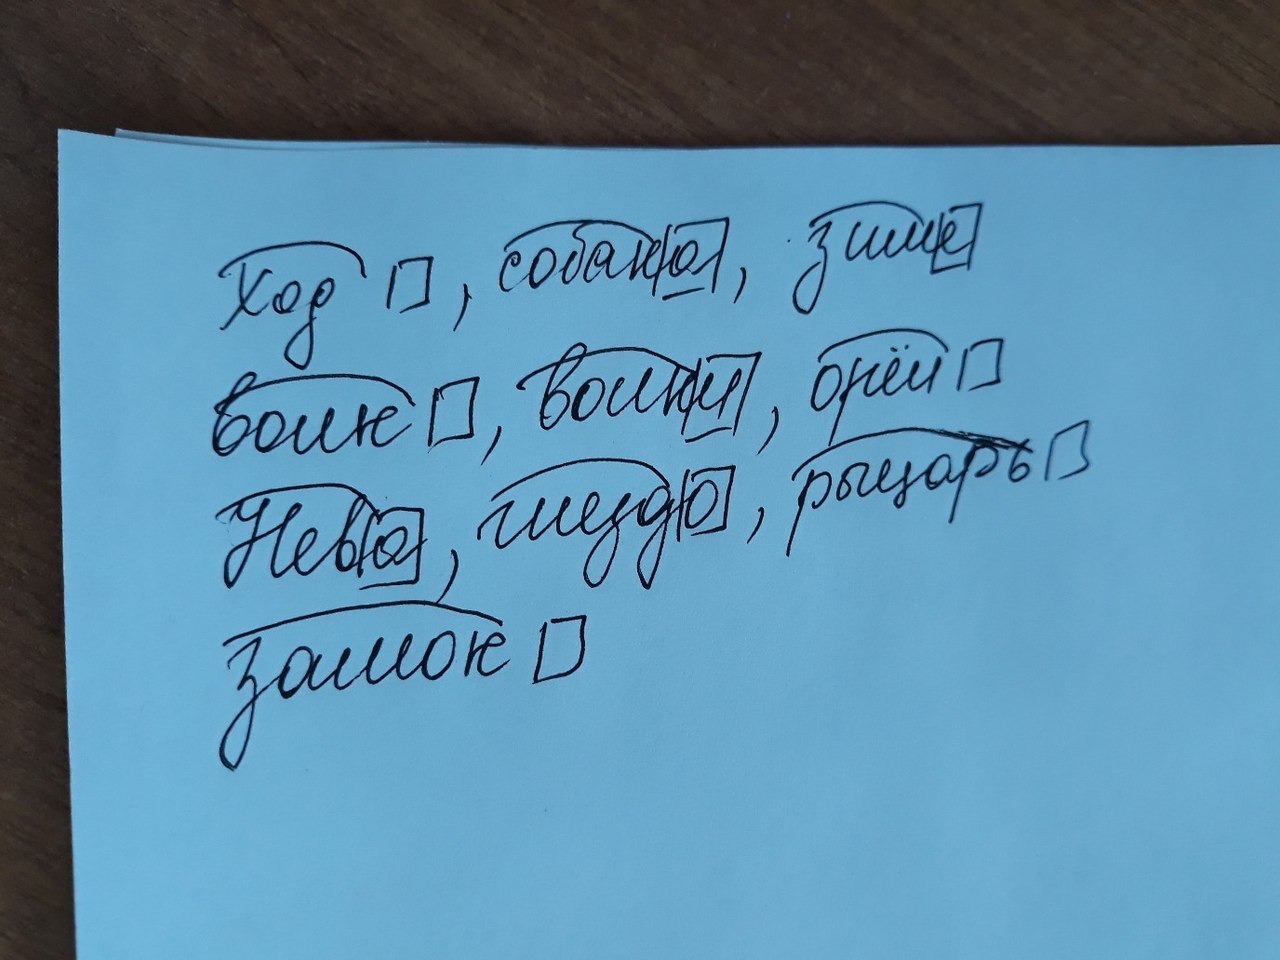 Ход, собака, зиме
волк, волки, орёл
Нева, гнездо, рыцарь
замок